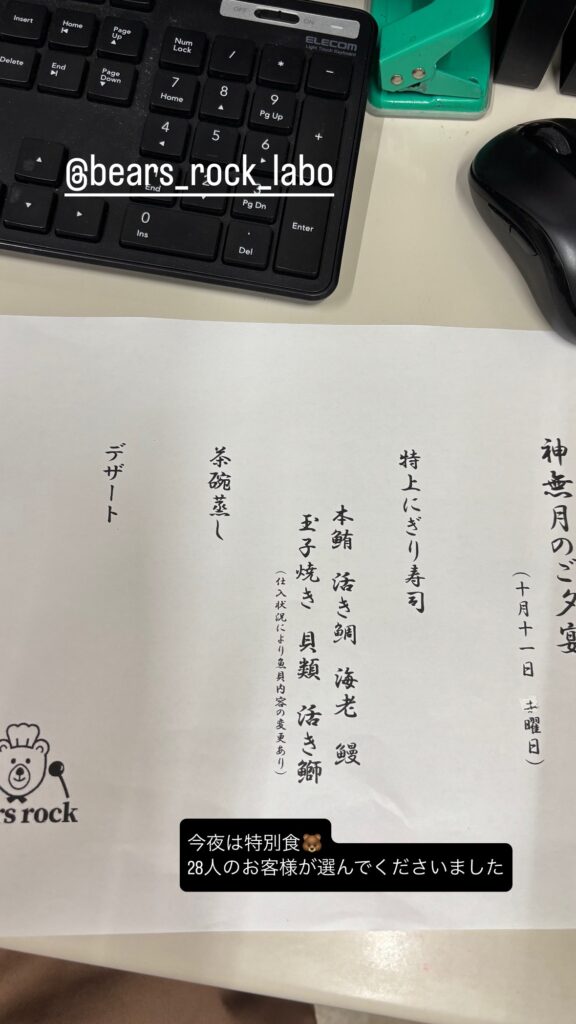 Insert
Home
Page Up
Delete
End
Page Down
Num Lock
/
*
-
7
Home
8
9
Pg Up
4
5
6
+
End
2
3
Pg Dn
0
Ins
.
Del
Enter
OFF
ON
ELECOM
@bears_rock_labo
神無月のご夕宴
(十月十一日 土曜日)
特上にぎり寿司
本鮪 活き鯛 海老 鰻
玉子焼き 貝類 活き鰤
(仕入状況により魚貝内容の変更あり)
茶碗蒸し
デザート
rs rock
今夜は特別食🐻
28人のお客様が選んでくださいました